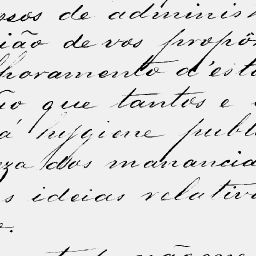 ssos de adminis
ião de vos propôr
lhoramento d'esta
ão que tantos e
á hygiene publi
eza dos manancia
s ideias relativa